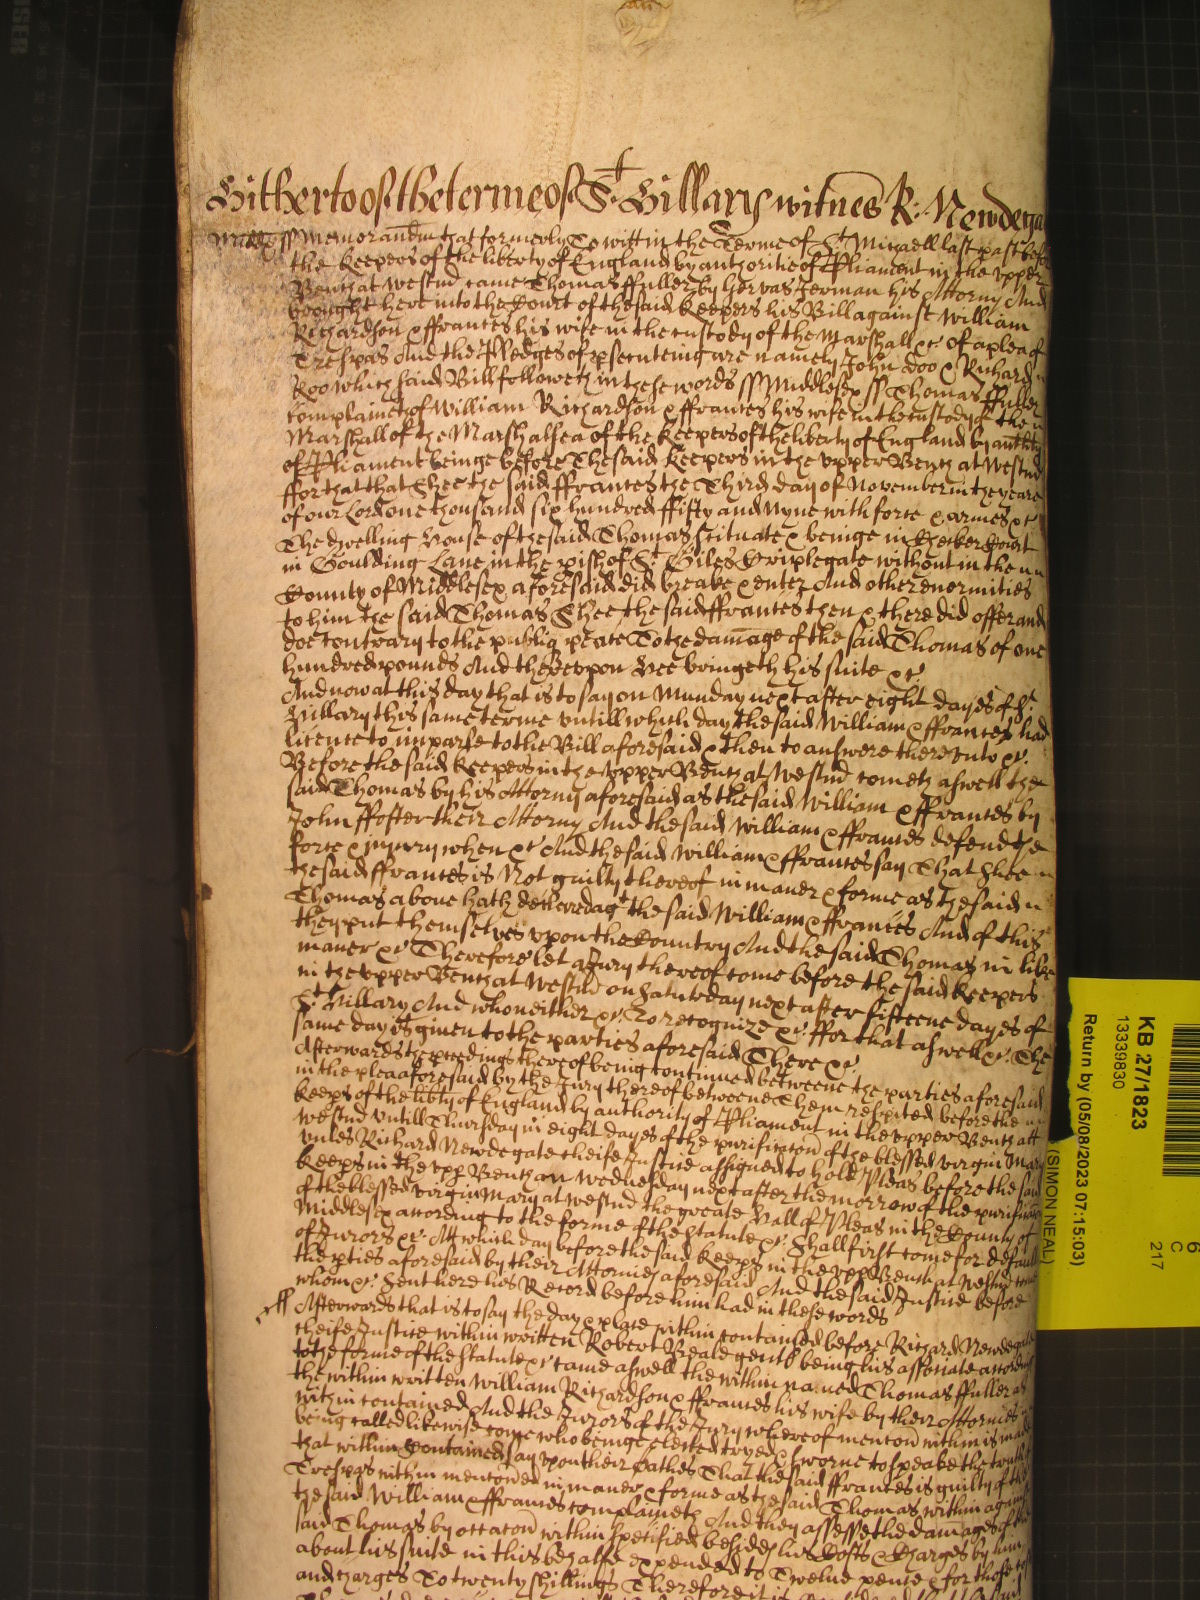 Hithertoo of the terme of St. Hillary witnes R: Newdega
Midds ss Memorandm that formerly To witt in the Terme of St. Michaell last past before
the Keepers of the liberty of England by authoritie of Pliament in the upper
Bench at Westmr came Thomas ffuller by Jervas Jerman his Attorny And
brought here into the Court of the said Keepers his Bill against William
Richardson & ffrances his wife in the custody of the Marshall &c of a plea of
Trespas And the Pledges of psecuteing are namely John Doo & Richard
Roo which said Bill followeth in these words ss Middlesex ss Thomas ffuller
complaineth of William Richardson & ffrances his wife in the custody of the
Marshall of the Marshalsea of the Keepers of the liberty of England by authority
of Pliament beinge before The said Keepers in the upper Bench at Westmr
ffor that that Shee the said ffrances the Third day of November in the yeare
of our Lord one thousand six hundred ffifty and Nyne with force & armes &c
The dwelling House of the said Thomas scituate & beinge in Checker Court
in Goulding Lane in the pish of St. Giles Criplegate without in the
County of Middlesex aforesaid did breake & enter And other enormities
to him the said Thomas Shee the said ffrances then & there did offer and
doe contrary to the publiq peace To the damage of the said Thomas of one
hundred pounds And thereupon Hee bringeth his suite &c
And now at this day that is to say on Munday next after eight dayes of St.
Hillary this same terme untill which day the said William & ffrances had
licence to imparle to the Bill aforesaid & then to answere thereunto &c.
Before the said Keepers in the upper Bench at Westmr cometh aswell the
said Thomas by his Attorny aforesaid as the said William & ffrances by
John ffoster their Attorny And the said William & ffrances defend the
force & injury when &c And the said William & ffrances say That Shee
the said ffrances is Not guilty thereof in maner & forme as the said
Thomas above hath declared agt the said William & ffrances And of this
they put themselves upon the Country And the said Thomas in like
maner &c Therefore let a Jury thereof come before the said Keepers
in the upper Bench at Westmr on Saturday next after fifteene dayes of
St. Hillary And who neither &c To recognize &c. ffor that aswell &c. The
same day is given to the parties aforesaid There &c.
Afterwards the pceedings thereof being continued betweene the parties aforesaid
in the plea aforesaid by the Jury thereof betweene Them respited before the
Keeps of the libty of England by authority of Pliament in the upper Bench att
Westmr untill Thursday in eight dayes of the purificacon of the blessed virgin Mary
unles Richard Newdegate cheife Justice assigned to hold Pleas before the said
Keeps in the upp Bench on Wednesday next after the morrow of the purificacon
of the blessed virgin Mary at Westmr the greate Hall of Pleas in the County of
Middlesex according to the forme of the Statute &c. Shall first come for default
of Jurors &c. Att which day before the said Keeps in the upp Bench at Westmr come
the pties aforesaid by their Attornies aforesaid And the said Justice before
whom &c. Sent here his Record before him had in these words
ss Afterwards that is to say the day & place within contained before Richard Newdegate
cheife Justice within written Robert Beale gentl being his associate according
to the forme of the Statute &c came aswell the within named Thomas ffuller as
the within written William Richardson & ffrances his wife by their Attornies
within contained And the Jurors of the Jury whereof mencon within is made
being called likewise come who beinge elected tryed & sworne to speake the truth of
that within Contained say upon their Oathes That the said ffrances is guilty of the
Trespas within menconed in maner & forme as the said Thomas within against
the said William & ffrances complaineth And they assesse the damages of the
said Thomas by occacon within specified besides his Costs & Charges by him
about his suite in this behalfe expended to Twelve pence & for those costs
and charges To twenty shillings Therefore it is
KB 27/1823
13339830
Return by (05/08/2023 07:15:03)
(SIMON NEAL)
6
C
217